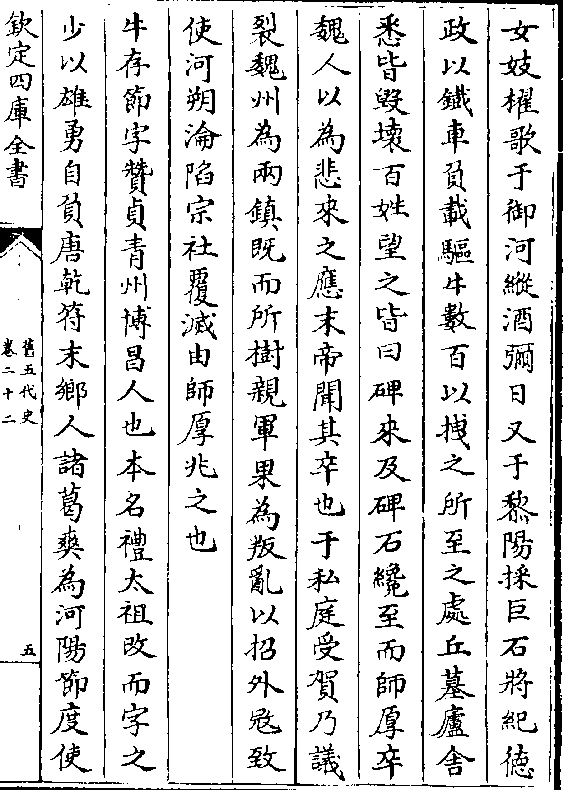 女妓櫂歌于御河縱酒彌日又于黎陽採巨石將紀德
政以鐵車負載驅牛數百以拽之所至之處丘墓廬舍
悉皆毀壞百姓望之皆曰碑來及碑石纔至而師厚卒
魏人以為悲來之應末帝聞其卒也于私庭受賀乃議
裂魏州為兩鎮既而所樹親軍果為叛亂以招外宼致
使河朔淪陷宗社覆滅由師厚兆之也
牛存節字贊貞青州博昌人也本名禮太祖改而字之
少以雄勇自負唐乾符末鄉人諸葛爽為河陽節度使
欽定四庫全書
舊五代史
卷二十二
五